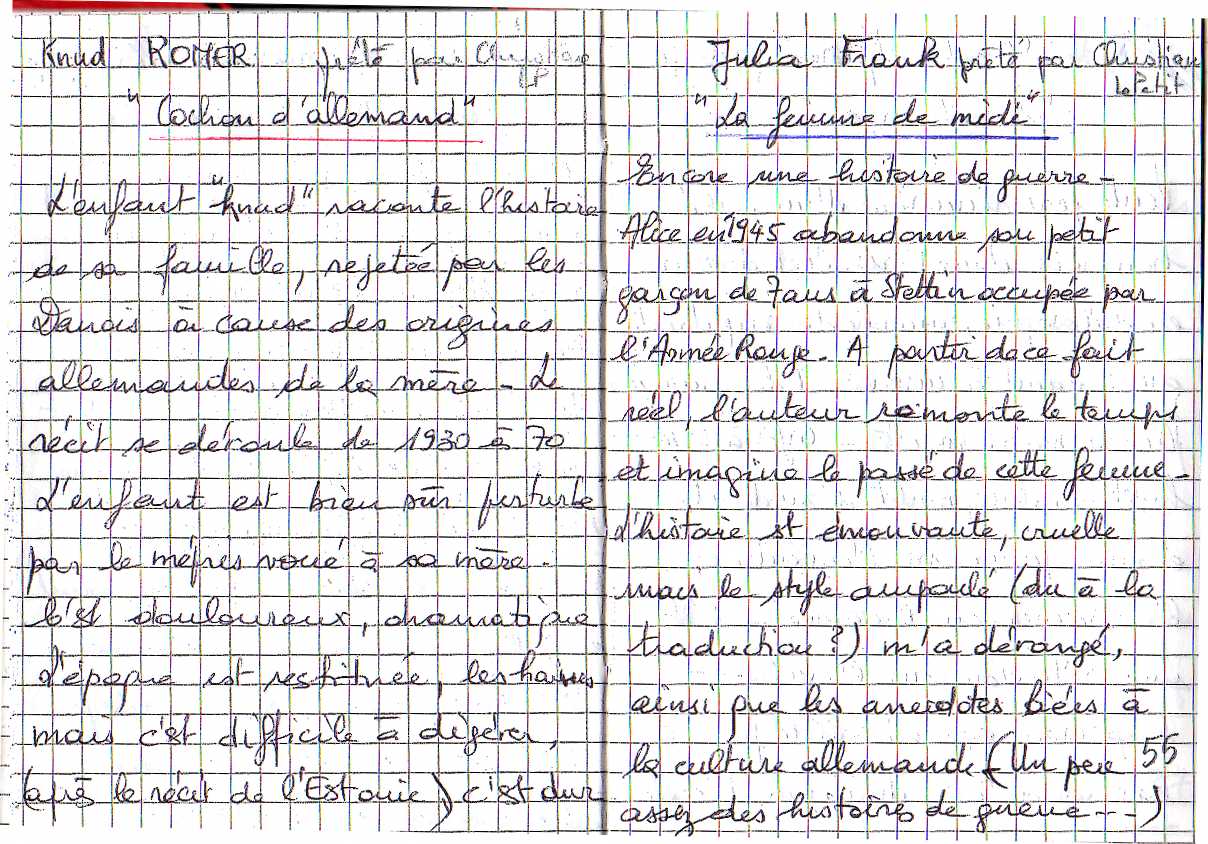 Knud ROMER prêté par Christian
LP
"Cochon d'allemand"
L'enfant "Knud" raconte l'histoire
de sa famille, rejetée par les
Danois à cause des origines
allemandes de la mère - Le
récit se déroule de 1930 à 70
L'enfant est bien sûr perturbé
par le mépris voué à sa mère.
C'est douloureux, dramatique
L'époque est restituée, les haines
mais c'est difficile à digérer,
(après le récit de l'Estonie) c'est dur
Julia Frank prêté par Christian
le Petit
"La femme de midi"
Encore une histoire de guerre -
Alice en 1945 abandonne son petit
garçon de 7 ans à Stettin occupée par
l'Armée Rouge. A partir de ce fait
réel, l'auteur remonte le temps
et imagine le passé de cette femme -
L'histoire est émouvante, cruelle
mais le style ampoulé (du à la
traduction ?) m'a dérangé,
ainsi que les anecdotes liées à
la culture allemande (Un peu 55
assez des histoires de guerre - - -)